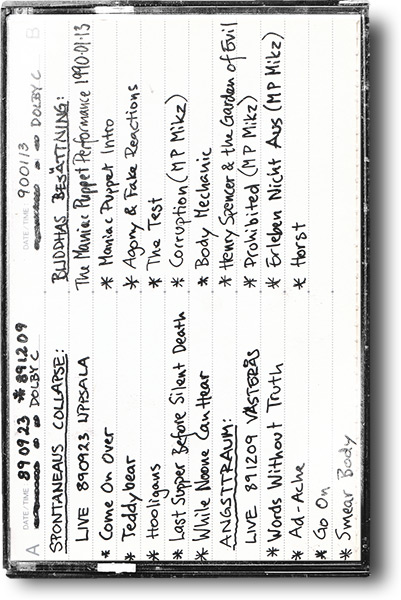 A DATE/TIME 890923 * 891209
DOLBY C
SPONTANEAUS COLLAPSE:
LIVE 890923 UPPSALA
* Come On Over
* Teddybear
* Hooligans
* Last Supper Before Silent Death
* While Noone Can Hear
ANGSTTRAUM:
LIVE 891209 VÄSTERÅS
* Words Without Truth
* Ad-Ache
* Go On
* Smear Body
B DATE/TIME 900113
DOLBY C
BUDDHAS BESÄTTNING:
The Maniac Puppet Performance 1990-01-13
* Maniac Puppet Intro
* Agony & Fake Reactions
* The Test
* Corruption (MP Mikz)
* Body Mechanic
* Henry Spencer & the Garden of Evil
* Prohibited (MP Mikz)
* Erleben Nicht Aus (MP Mikz)
* Horst